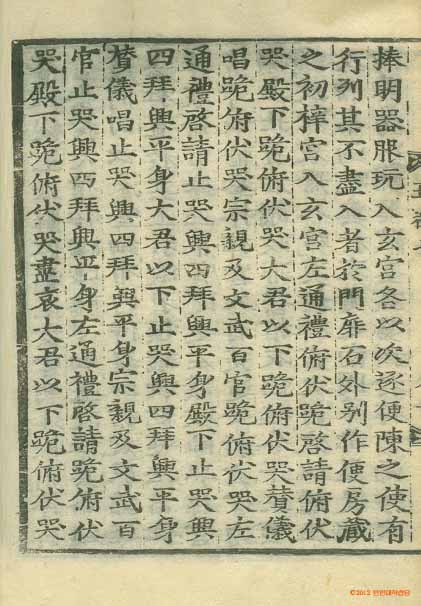 捧明器服玩入玄宮各以次逐便陳之使有
行列其不盡入者於門扉石外別作便房藏
之初梓宮入玄宮左通禮俯伏跪啓請俯伏
哭殿下跪俯伏哭大君以下跪俯伏哭贊儀
唱跪俯伏哭宗親及文武百官跪俯伏哭左
通禮啓請止哭興四拜興平身殿下止哭興
四拜興平身大君以下止哭興四拜興平身
贊儀唱止哭興四拜興平身宗親及文武百
官止哭興四拜興平身左通禮啓請跪俯伏
哭殿下跪俯伏哭盡哀大君以下跪俯伏哭
인민대학습당